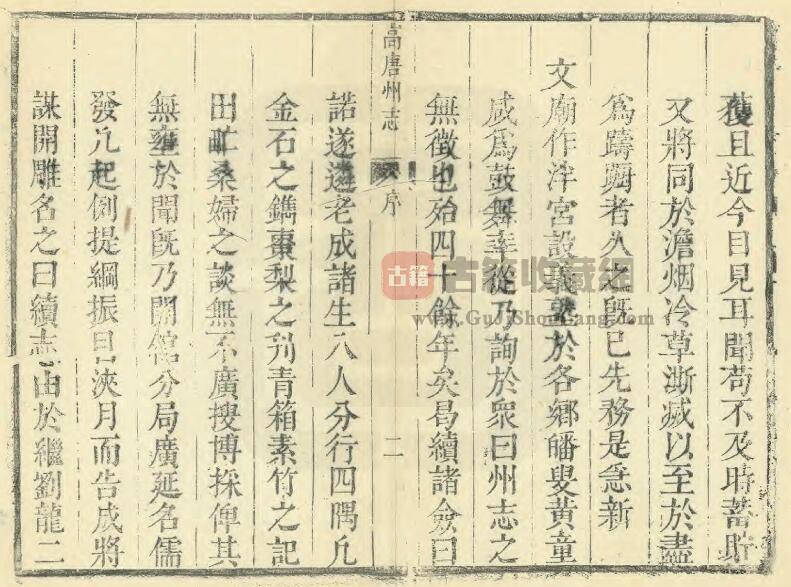 獲且近今目見耳聞苟不及時蓄貯
又將同於澹烟冷草澌滅以至於盡
爲躊躇者久之旣已先務是急新
文廟作泮宮設義塾於各鄉皤叟黃童
咸爲鼓舞幸從乃詢於衆曰州志之
無徵也殆四十餘年矣曷續諸僉曰
高唐州志
序
二
諾遂遴老成諸生八人分行四隅凡
金石之鐫棗梨之刋青箱素竹之記
田畯桑婦之談無不廣搜博採俾其
無壅於聞旣乃開舘分局廣延名儒
發凡起例提綱振目浹月而告成將
謀開雕名之曰續志由於繼劉龍二
古籍
古籍收藏網
www.GuJiShouCang.com